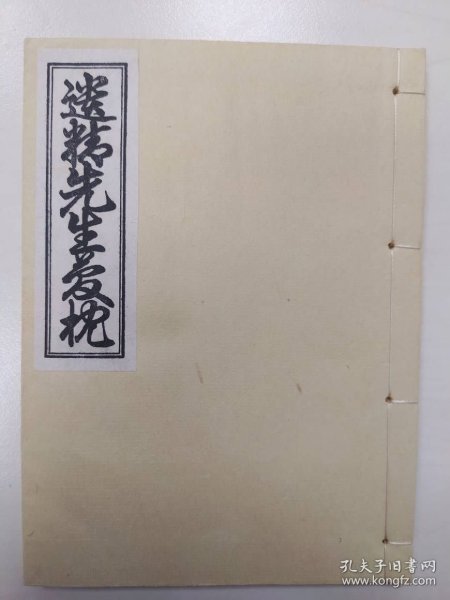 遺精先生夢枕
孔夫子旧书网
www.kongfz.com